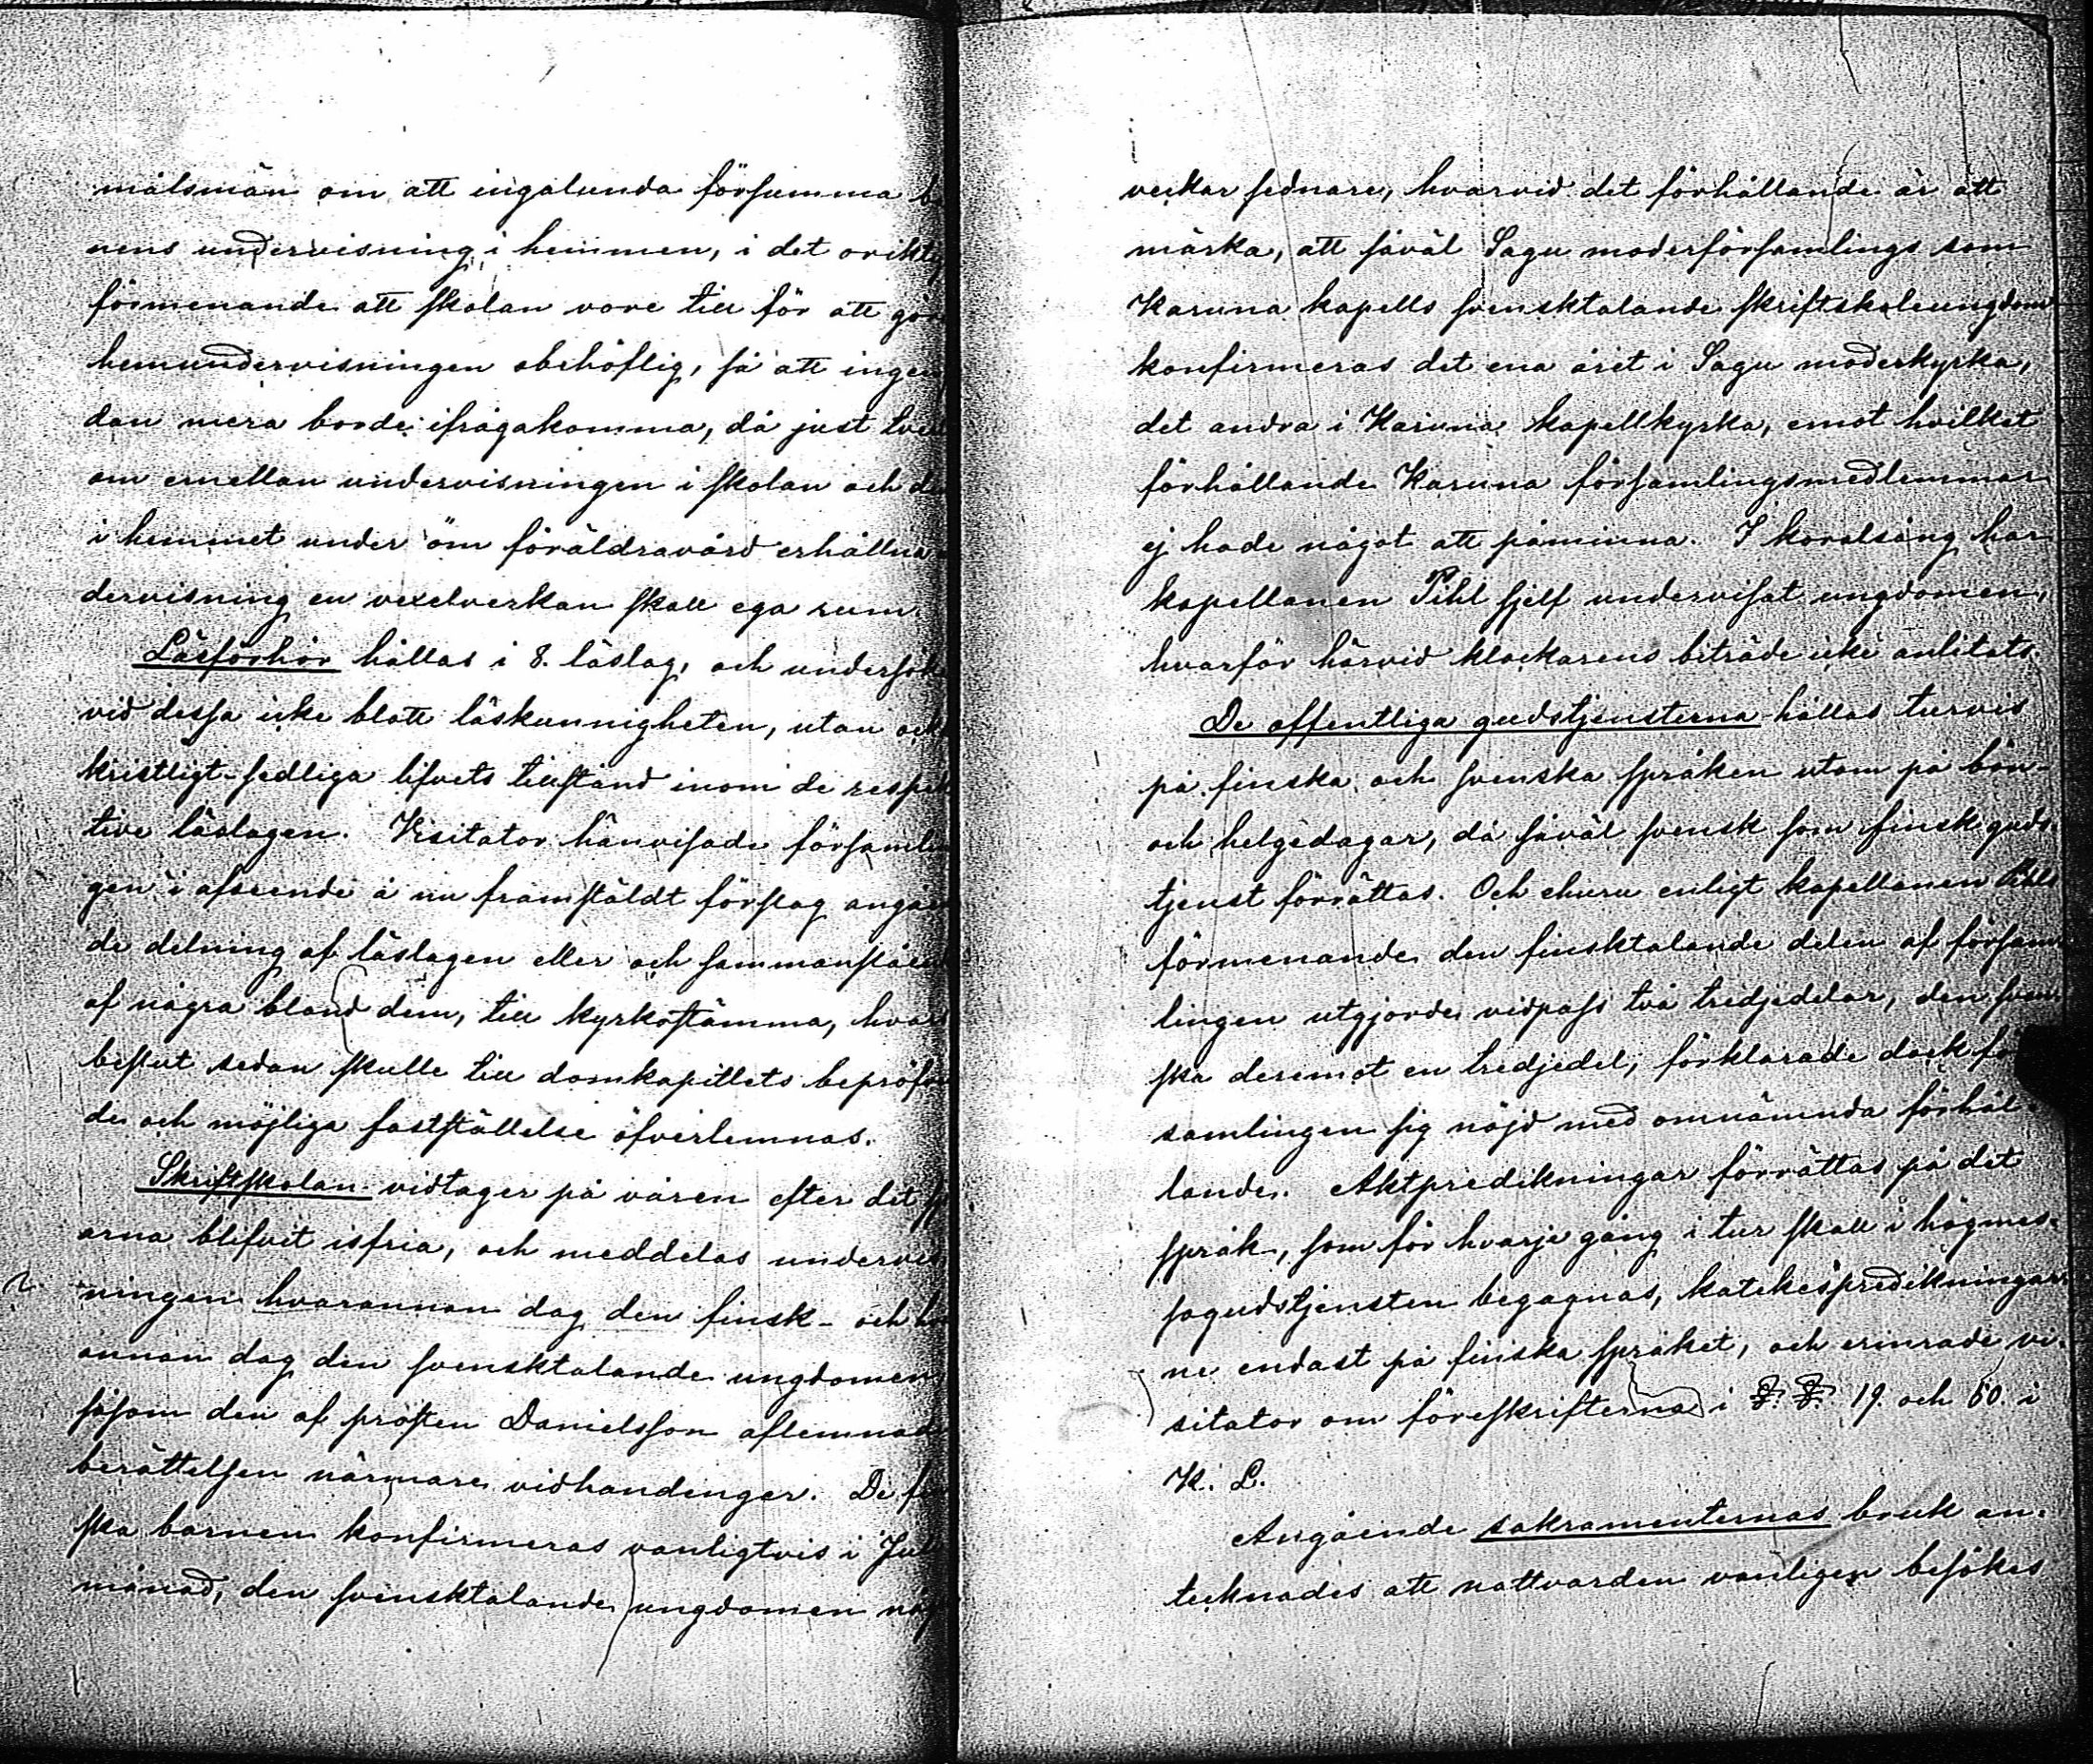 målsmän om att ingalunda försumma b
nens undervisning i hemmen, i det orikt
förmenande att skolan vore till för att gör
hemundervisningen obehöflig, så att ingen
dan mera borde ifrågakomma, då just tve
om emellan undervisningen i skolan och d
i hemmet under öm föräldravård erhållna
dervisning en vexelverkan skall ega rum.
Läsförhör hållas i 8. läslag, och undersök
vid dessa icke blott läskunnigheten, utan ock
kristligt-sedliga lifvets tillstånd inom de respek
tive läslagen. Visitator hänvisade församlin
gen i afseende å nu framstäldt förslag angåen
de delning af läslagen eller och sammanslåen
af några bland dem, till kyrkostämma, hvars
beslut sedan skulle till domkapitlets bepröfvan
de och möjliga fastställelse öfverlemnas.
Skriftskolan vidtager på våren efter det fj
arna blifvit isfria, och meddelas undervis
ningen hvarannan dag den finsk- och hv
annan dag den svensktalande ungdomen
såsom den af prosten Danielsson aflemnade
berättelsen närmare vidhandenger. De fin
ska barnen konfirmeras vanligtvis i Jul
månad, den svensktalande ungdomen någ
veckor sednare, hvarvid det förhållande är att
märka, att såväl Sagu moderförsamlings som
Karuna kapells svensktalande skriftskoleungdom
konfirmeras det ena året i Sagu moderkyrka,
det andra i Karuna kapellkyrka, emot hvilket
förhållande Karuna församlingsmedlemmar
ej hade något att påminna. I koralsång har
kapellanen Pihl sjelf undervisat ungdomen,
hvarför härvid klockarens biträde icke anlitats.
De offentliga gudstjensterna hållas turvis
på finska och svenska språken utom på bön-
och helgedagar, då såväl svensk som finsk guds-
tjenst förrättas. Och ehuru enligt kapellanen Pihls
förmenande den finsktalande delen af försam-
lingen utgjorde vidpass två tredjedelar, den sven-
ska deremot en tredjedel, förklarade dock för
samlingen sig nöjd med omnämnda förhål-
lande. Aktpredikningar förrättas på det
språk, som för hvarje gång i tur skall i högmes-
sogudstjensten begagnas, katekespredikningar-
ne endast på finska språket, och erinrade vi-
sitator om föreskrifterna i §. §. 19. och 60. i
K. L.
Angående sakramenternas bruk an-
tecknades att nattvarden vanligen besökes